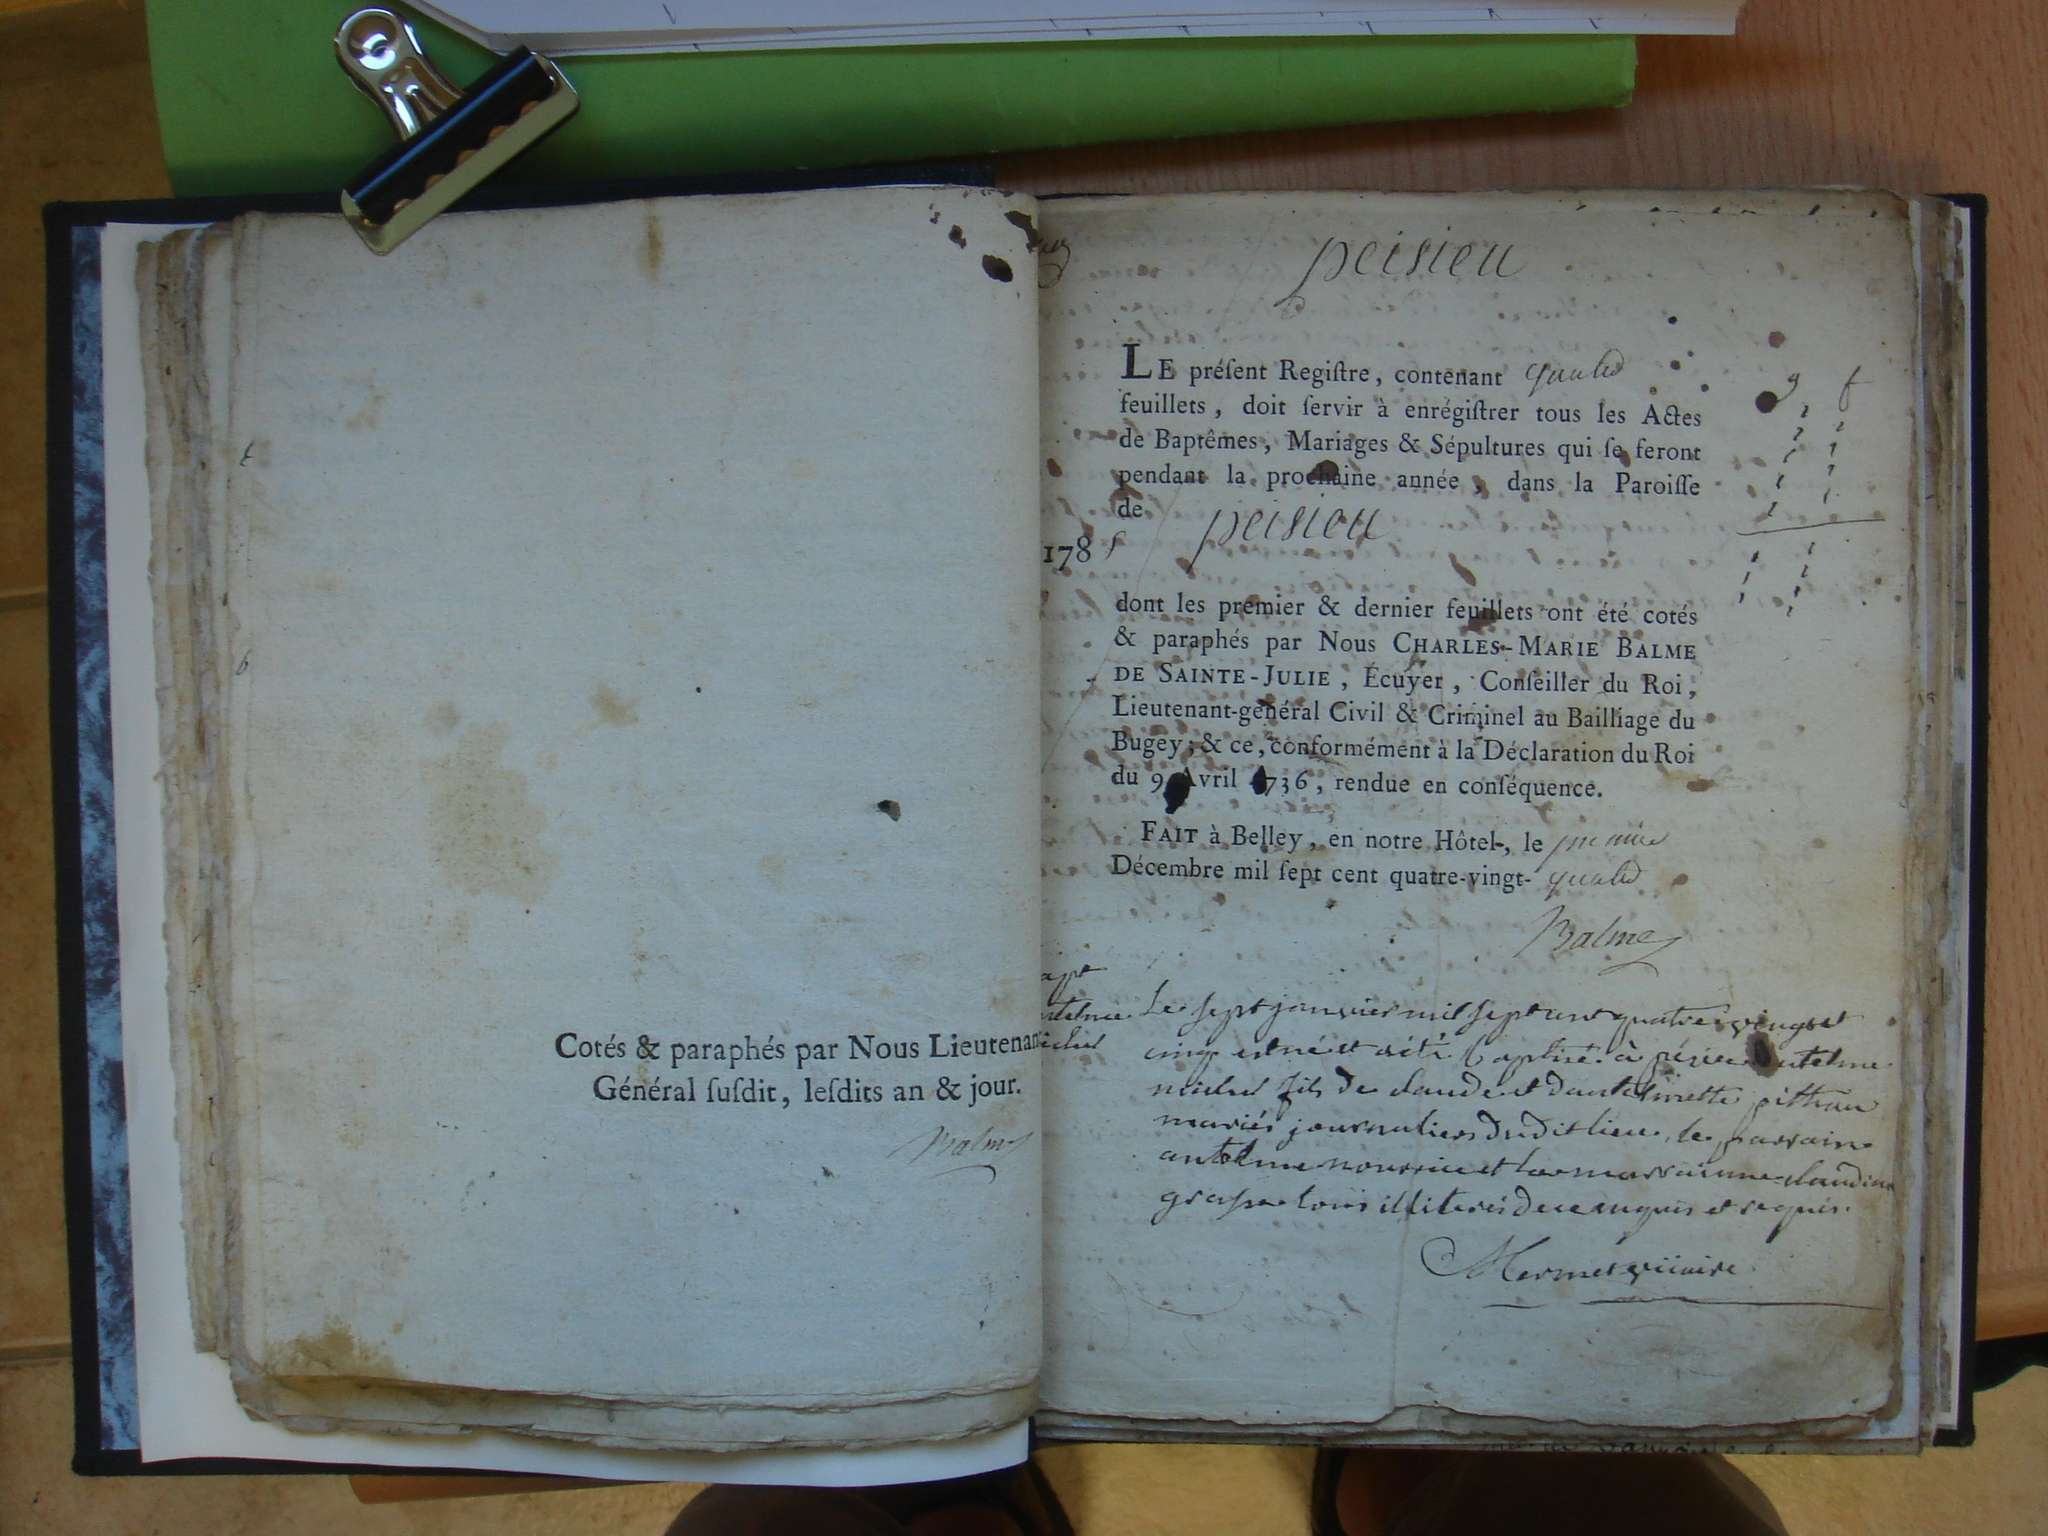 Cotés & paraphés par Nous Lieutenan
Général ſuſdit, leſdits an & jour.
Balme
peisieu
LE préſent Regiſtre, contenant quatre
feuillets, doit ſervir à enrégiſtrer tous les Actes
de Baptêmes, Mariages & Sépultures qui ſe feront
pendant la prochaine année, dans la Paroiſſe
de peisieu
1785
dont les premier & dernier feuillets ont été cotés
& paraphés par Nous CHARLES-MARIE BALME
DE SAINTE-JULIE, Écuyer, Conſeiller du Roi,
Lieutenant-général Civil & Criminel au Bailliage du
Bugey; & ce, conformément à la Déclaration du Roi
du 9 Avril 1736, rendue en conſéquence.
FAIT à Belley, en notre Hôtel, le premier
Décembre mil ſept cent quatre-vingt-quatre
Balme
Le sept janvier mil sept cent quatre vingt et
cinq est né et a été baptisé à antelme
michel fils de claude et dantelmette pithion
mariés journaliers dudit lieu, le parrain
antelme nourrice et la marrainne claudine
grasse tous illiterés de ce enquis et requis.
Mermet vicaire